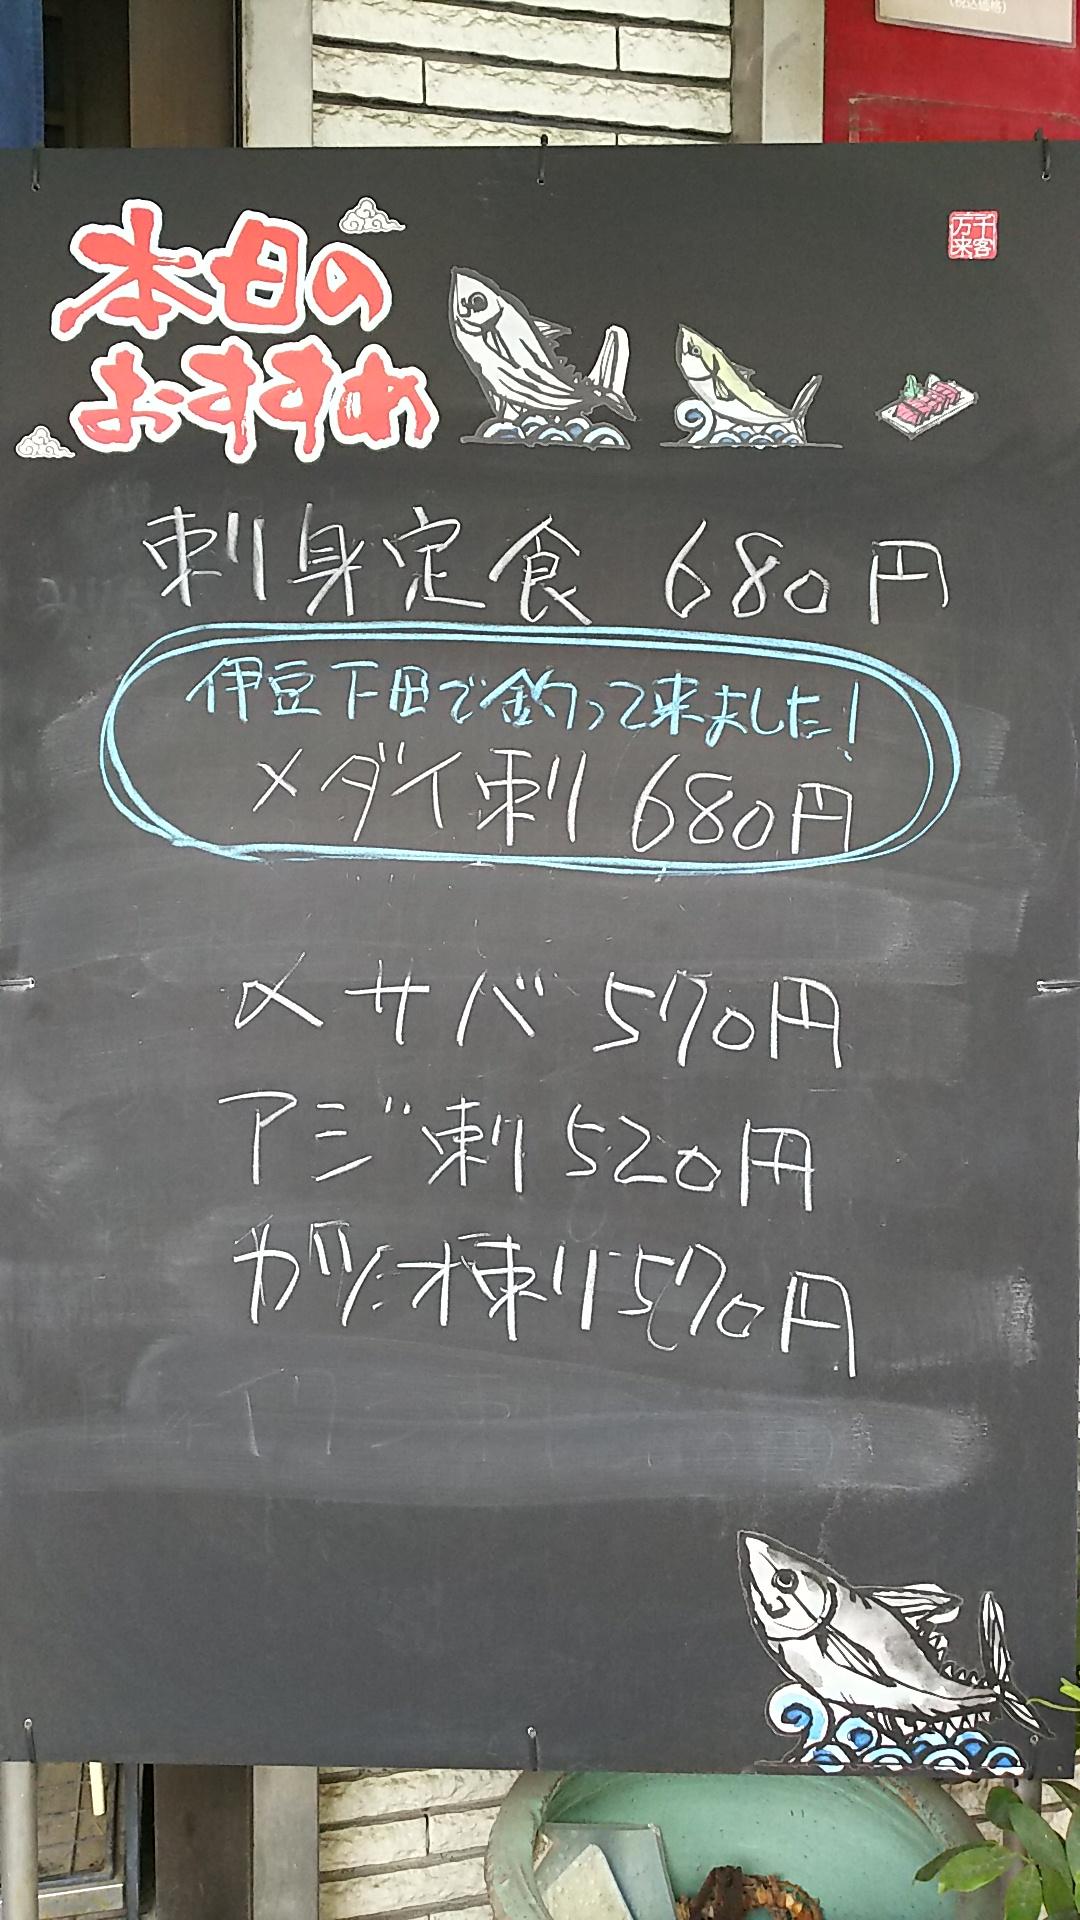 (税込価格)
本日の
おすすめ
千客
万来
刺身定食 680円
伊豆下田で釣って来ました!
メダイ刺 680円
〆サバ 570円
アジ刺 520円
ガツオ刺 570円